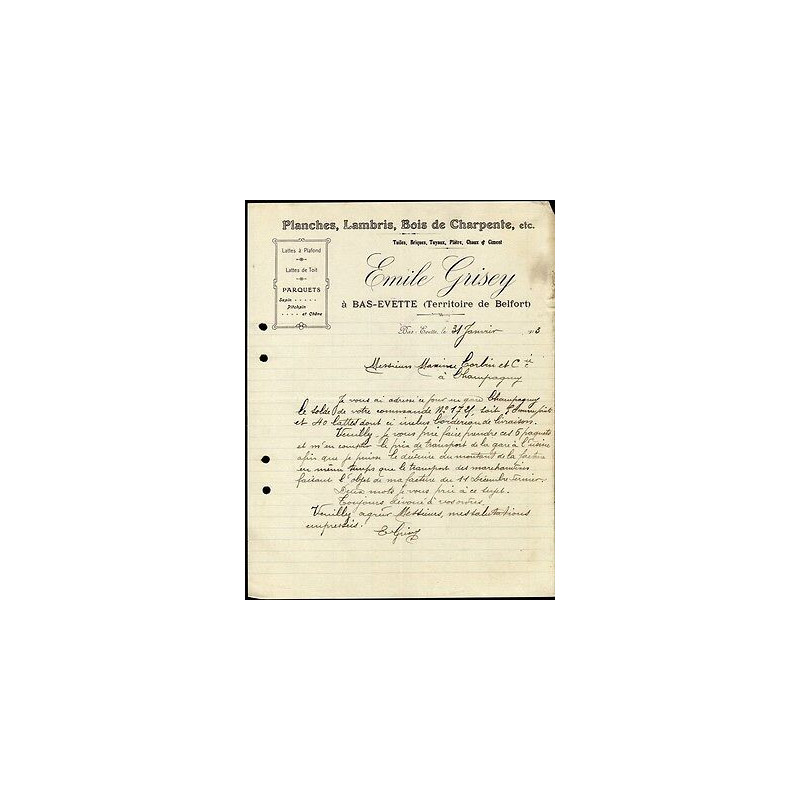 Planches, Lambris, Bois de Charpente, etc.
Tuiles, Briques, Tuyaux, Plâtre, Chaux & Ciment
Lattes à Plafond
Lattes de Toit
PARQUETS
Sapin
Pitchpin
et Chêne
Emile Grisey
à BAS-EVETTE (Territoire de Belfort)
Bas-Evette, le 31 Janvier
Messieurs Maxime Corbin et Cie
à Champagney
Je vous ai adressé ce jour en gare Champagney
le solde de votre commande No 1721, soit
et 40 lattes dont ci inclus bordereau de livraison.
Veuillez je vous prie faire prendre ces 6 paquets
et m'en compter le prix de transport de la gare à l'usine
afin que je puisse le déduire du montant de la facture
en même temps que le transport des marchandises
faisant l'objet de ma facture du 11 Décembre dernier.
Deux mots je vous prie à ce sujet.
Toujours dévoué à vos ordres
Veuillez agréer Messieurs, mes salutations
empressées.
E Grisey